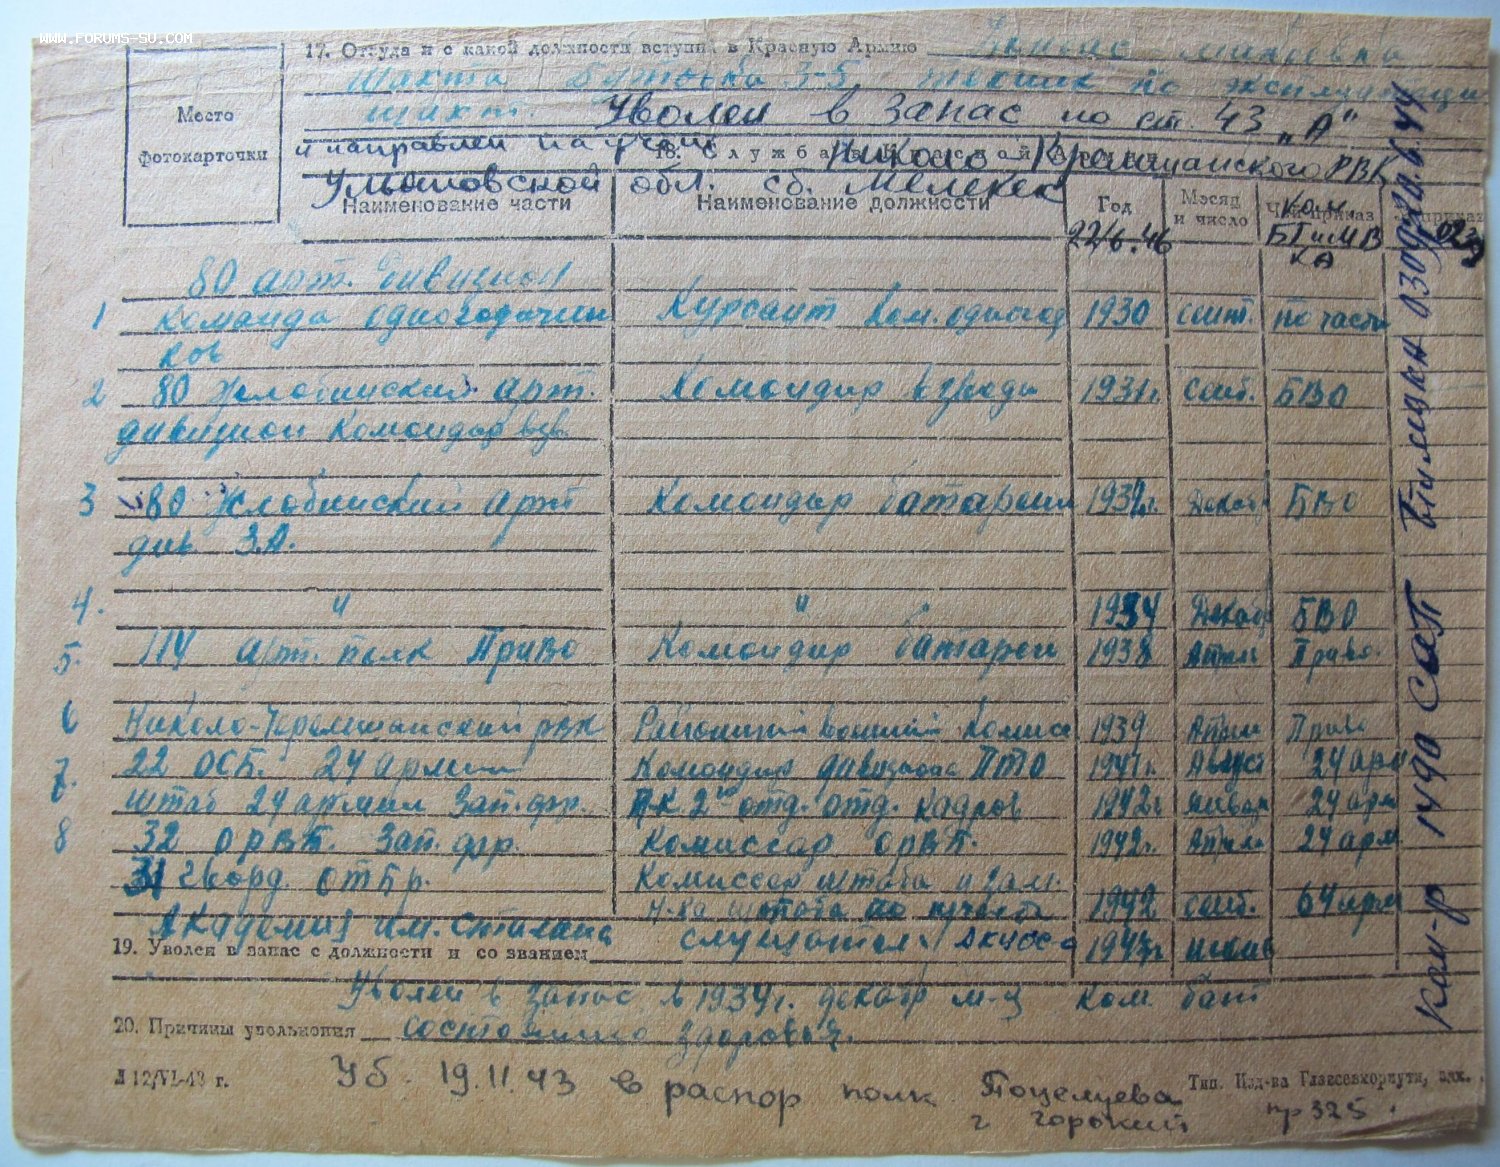 www.forums-su.com
Место
фотокарточки
17. Откуда и с какой должности вступил в Красную Армию
шахта Бутовка 3-5 техник по эксплуатации
шахт. Уволен в запас по ст. 43 „А"
и направлен на учёт Николо Кремшанского РВК
18. Служба в Красной
Ульяновской обл. ст. Мелекес
Наименование части
Наименование должности
Год
Месяц и число
Чей приказ
приказ
22/6.46
Ком. БТ и МВ КА
80 арт. дивизион
1 Команда одногодични Курсант Ком. одногод 1930 сент. по части
ков
2 80 Жлобинский арт. Командир взвода 1931 г. сент. БВО
дивизион командир взв.
3 80 Жлобинский арт Командир батареи 193 г. Декабр БВО
див З.А.
4. " " 1934 Декабр БВО
5. 114 арт. полк ПриВО Командир батареи 1938 Апрел ПриВо.
6 Николо-Черемшанский рвк Районный военный комисс 1939 Апрел ПриВо
7. 22 ОСБ. 24 армии Командир дивизиона ПТО 1941 г. Август 24 арм
штаб 24 армии Зап. фр. 2го отд. отд. кадров 1942 г. январ 24 арм
8 32 ОРВБ. Зап. фр. Комиссар ОРВБ. 1942 г. Апрель 24 арм.
31 Гвард. ОТБр. Комиссар штаба и зам.
н-ка штаба по 1942 сент. 64 арм
Академия им. Сталина слушатель 1943 г. июнь
19. Уволен в запас с должности и со званием
Уволен в запас в 1934 г. декабр м-ц ком. бат
20. Причины увольнения состоянию здоровья.
Уб. 19.11.43 в распор полк Поцелуева
г Горький
пр 325.
Л 12/VI-43 г.
Тип. Изд-ва Главсевморпути, зак.
ком-р 1490 САП